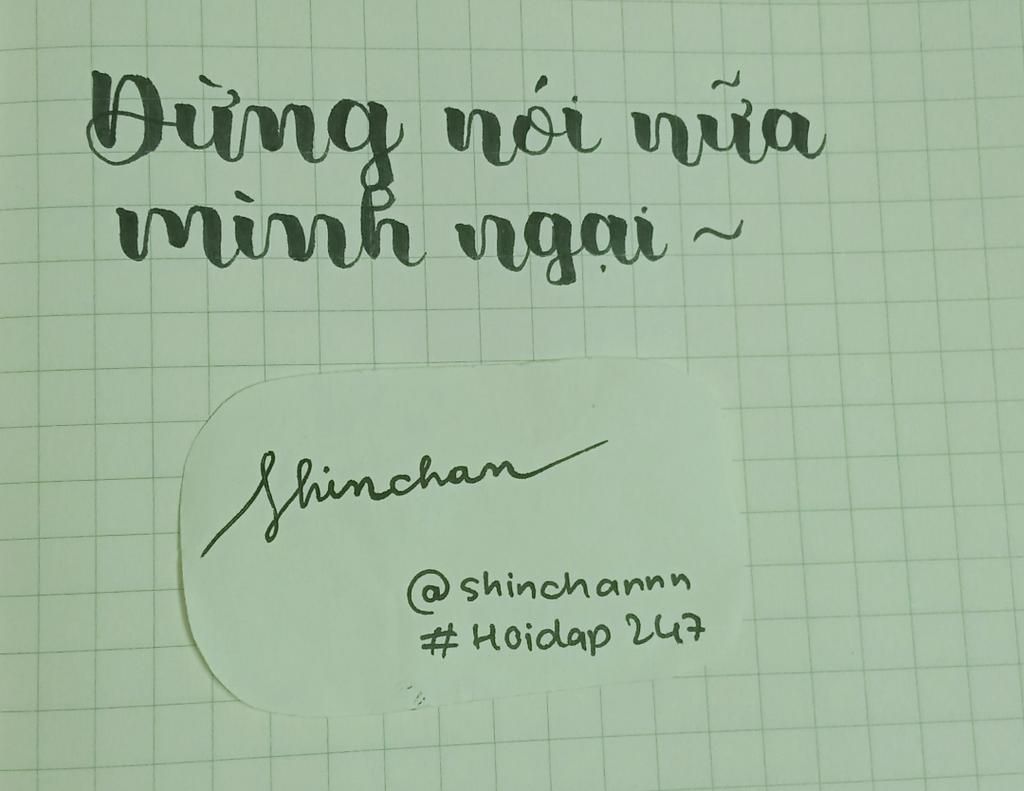 Đừng nói nữa
mình ngại ~
Shinchan
@shinchannn
# Hoidap 247